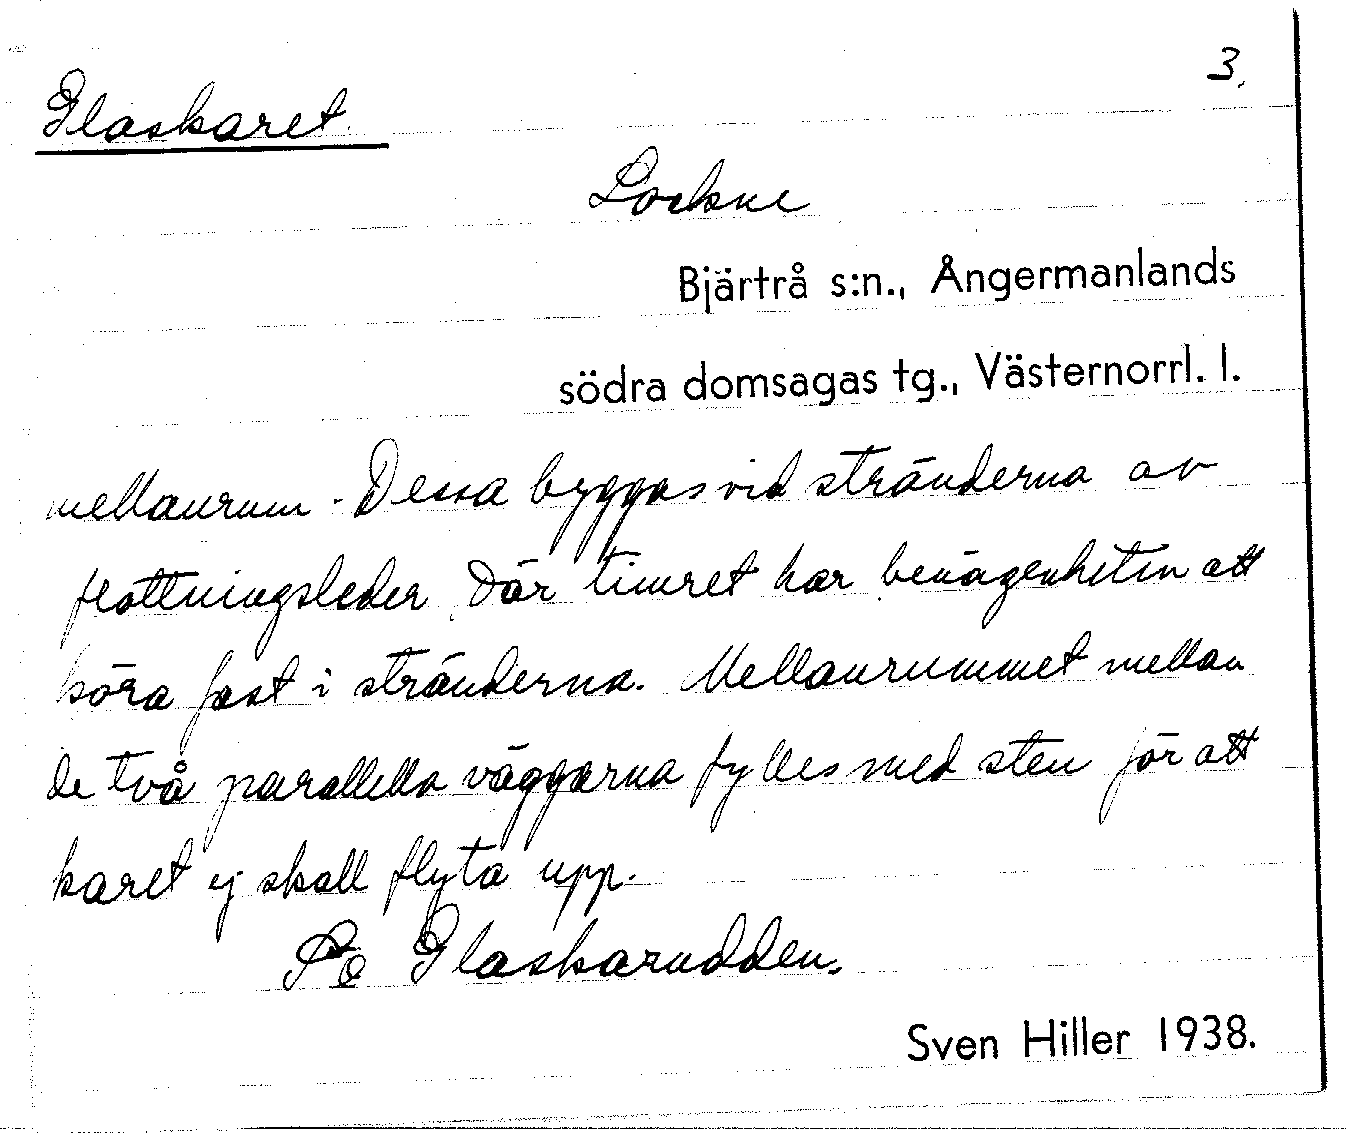 3.
Glaskaret
Lockne
Bjärtrå s:n., Ångermanlands
södra domsagas tg., Västernorrl. l.
mellanrum - Dessa byggas vid stränderna av
flottningsleder där timret har benägenheten att
köra fast i stränderna. Mellanrummet mellan
de två parallella väggarna fylles med sten för att
karet ej skall flyta upp.
Se Glaskarudden.
Sven Hiller 1938.